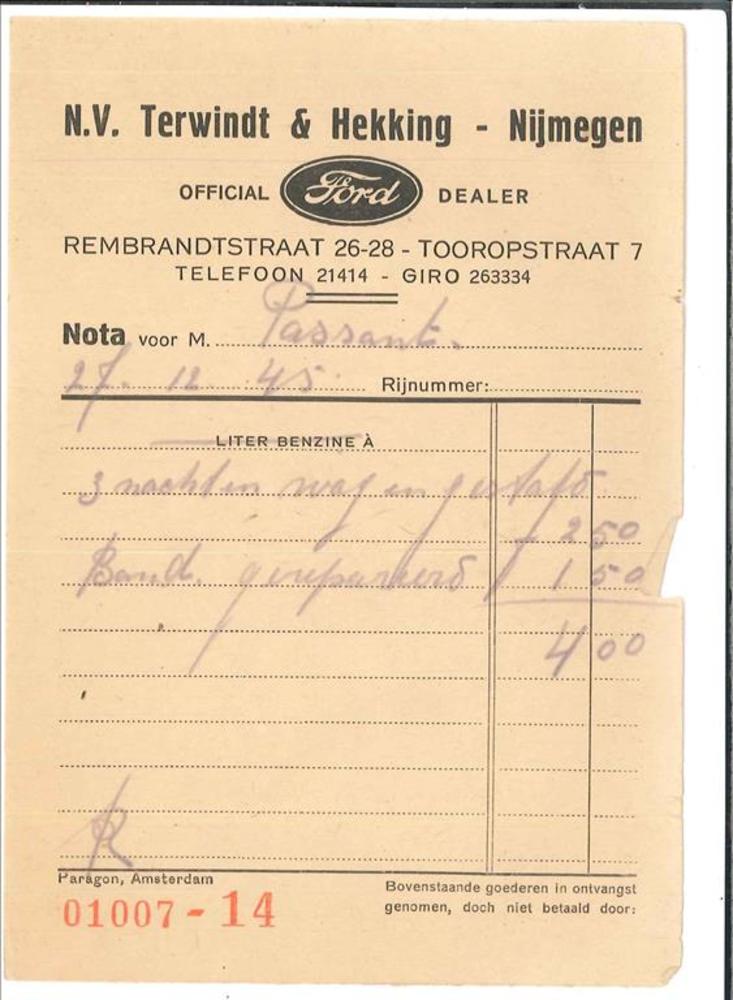 N.V. Terwindt & Hekking - Nijmegen
OFFICIAL Ford DEALER
REMBRANDTSTRAAT 26-28 - TOOROPSTRAAT 7
TELEFOON 21414 - GIRO 263334
Nota voor M. Passant.
27. 12. 45. Rijnummer:
LITER BENZINE À
3 nachten wagen gestald
2 50
Band gerepareerd 1 50
4 00
Paragon, Amsterdam
01007-14
Bovenstaande goederen in ontvangst
genomen, doch niet betaald door: